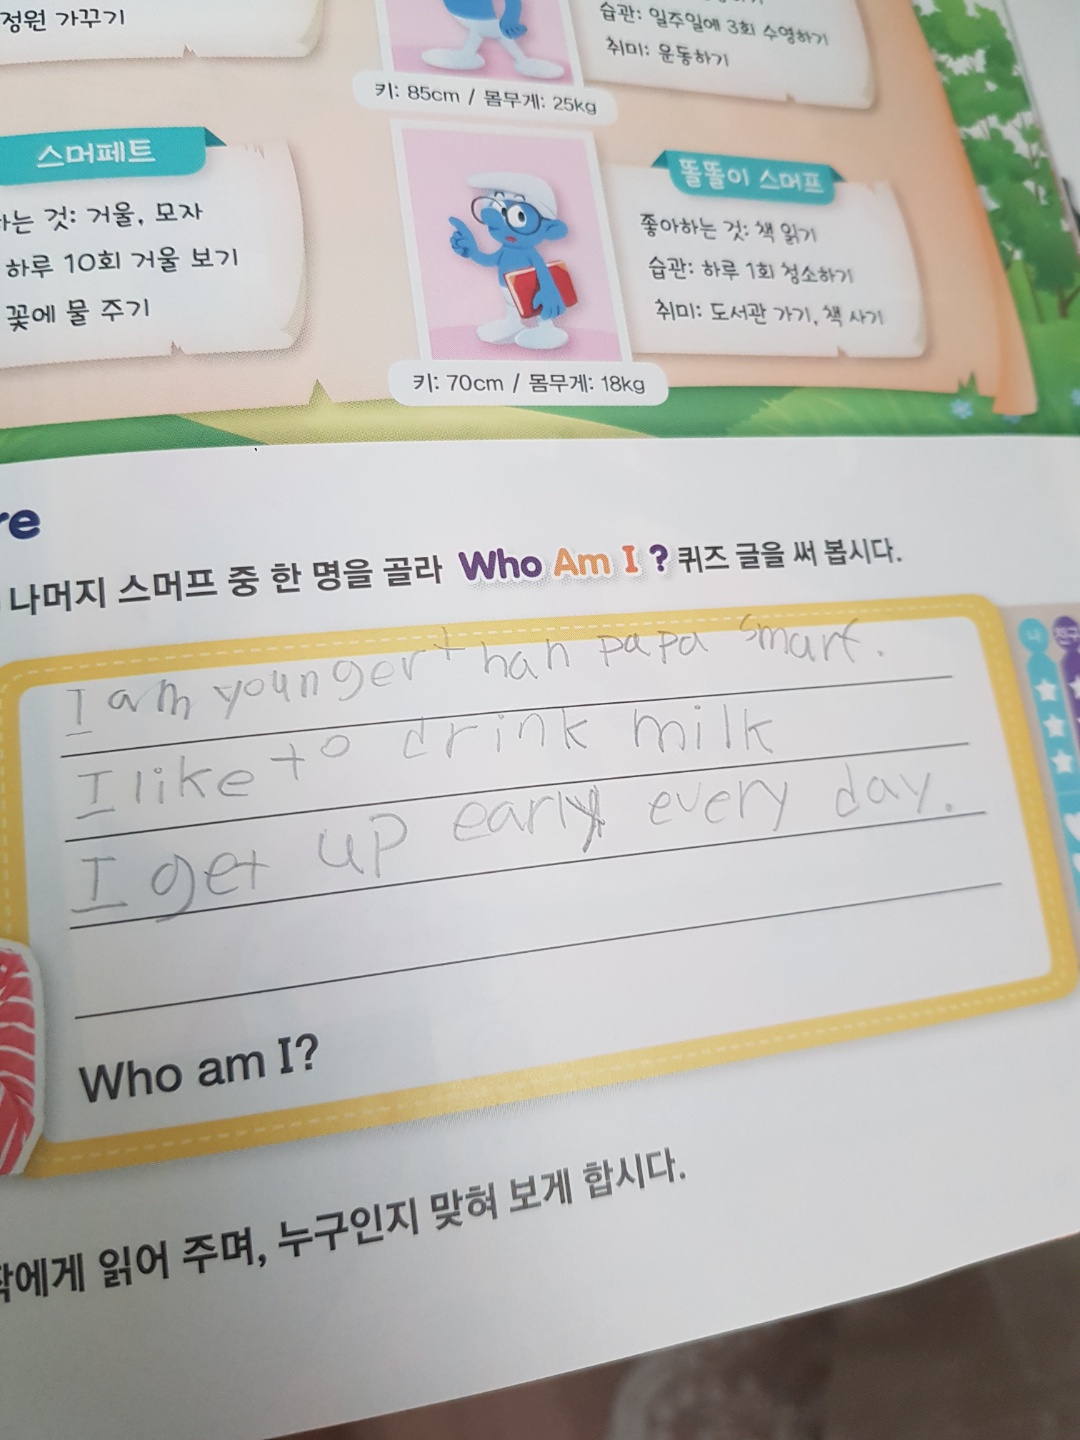 정원 가꾸기
습관: 일주일에 3회 수영하기
취미: 운동하기
키: 85cm / 몸무게: 25kg
스머페트
하는 것: 거울, 모자
하루 10회 거울 보기
꽃에 물 주기
똘똘이 스머프
좋아하는 것: 책 읽기
습관: 하루 1회 청소하기
취미: 도서관 가기, 책 사기
키: 70cm / 몸무게: 18kg
re
나머지 스머프 중 한 명을 골라 Who Am I? 퀴즈 글을 써 봅시다.
나 친구
I am younger than papa smarf.
I like to drink milk
I get up early every day.
Who am I?
에게 읽어 주며, 누구인지 맞혀 보게 합시다.